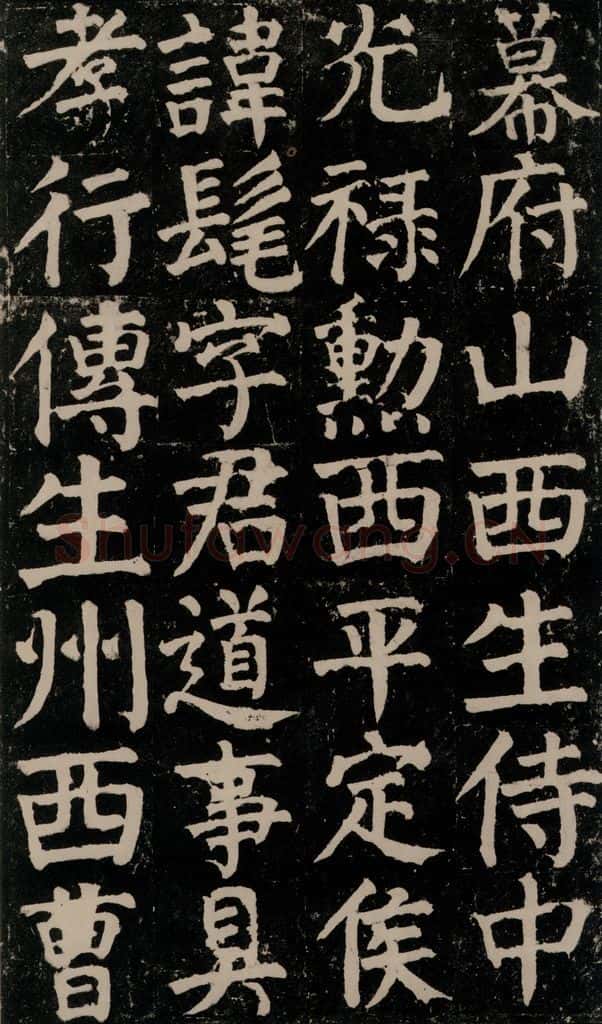 幕府山西生侍中
光禄勲西平定侯
諱髦字君道事具
孝行傳生州西曹
Shufawang.CN